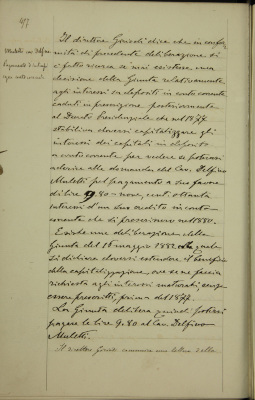 417
Muletti cav. Delfino
Il direttore Giusiti dice che in confor-
mità di precedente deliberazione si
è fatto ricerca se mai esistesse una
decisione della Giunta relativamente
agli interessi su depositi in conto corrente
caduti in prescrizione posteriormente
al Decreto Presidenziale che nel 1877
stabiliva doversi capitalizzare gli
interessi dei capitali in deposito
a conto corrente per vedere se potevasi
aderire alla domanda del Cav. Delfino
Muletti pel pagamento a suo favore
di lire 9.80 nove, cent. ottanta
interessi d'un suo credito in conto
corrente che si prescrissero nel 1880.
Esiste una deliberazione della
Giunta del 15 maggio 1882 la quale
si dichiara doversi estendere il benefizio
della capitalizzazione, ove se ne faccia
richiesta agli interessi maturati, sempre
essere prescritti, prima del 1877.
La Giunta delibera quindi potersi
pagare le lire 9.80 al Cav. Delfino
Muletti.
Il direttore comunica una lettera della